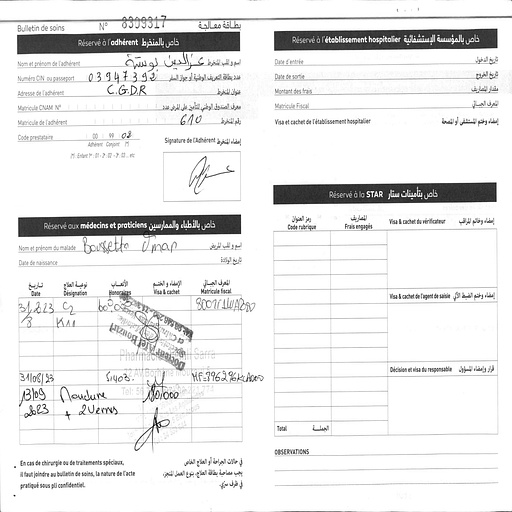 Bulletin de soins N° 8399317 بطاقة معالجة
Réservé à l'adhérent خاص بالمنخرط
Nom et prénom de l'adhérent عز الدين بوستة اسم و لقب المنخرط
Numéro CIN ou passeport 03947392 عدد بطاقة التعريف الوطنية أو جواز السفر
Adresse de l'adhérent C.G.D.R عنوان المنخرط
Matricule CNAM N° معرف الصندوق الوطني للتأمين على المرض عدد
Matricule de l'adhérent 610 رقم المنخرط
Code prestataire 00 99 02
Adhérent Conjoint (*)
(*) Enfant 1er : 01 - 2 : 02 - 3 : 03 ... etc
Signature de l'Adhérent إمضاء المنخرط
Réservé aux médecins et praticiens خاص بالأطباء والممارسين
Nom et prénom du malade Boussetta Omar اسم و لقب المريض
Date de naissance تاريخ الولادة
تاريخ نوعية العلاج الأتعاب الإمضاء و الختم المعرف الجبائي
Date Désignation Honoraires Visa & cachet Matricule fiscal
C2
8 K11
31/08/23
13/09 Monture
2023 + 2 Verres
En cas de chirurgie ou de traitements spéciaux,
il faut joindre au bulletin de soins, la nature de l'acte
pratiqué sous pli confidentiel.
في حالات الجراحة أو العلاج الخاص
يجب مصاحبة بطاقة العلاج، بنوع العمل المنجز،
في ظرف سري.
Réservé à l'établissement hospitalier خاص بالمؤسسة الإستشفائية
Date d'entrée تاريخ الدخول
Date de sortie تاريخ الخروج
Montant des frais مقدار المصاريف
Matricule Fiscal المعرف الجبائي
Visa et cachet de l'établissement hospitalier إمضاء وختم المستشفى أو المصحة
Réservé à la STAR خاص بتأمينات ستار
رمز العنوان المصاريف إمضاء وختم المراقب
Code rubrique Frais engagés Visa & cachet du vérificateur
Visa & cachet de l'agent de saisie إمضاء وختم الضبط الآلي
Décision et visa du responsable قرار وإمضاء المسؤول
Total الجملة
OBSERVATIONS